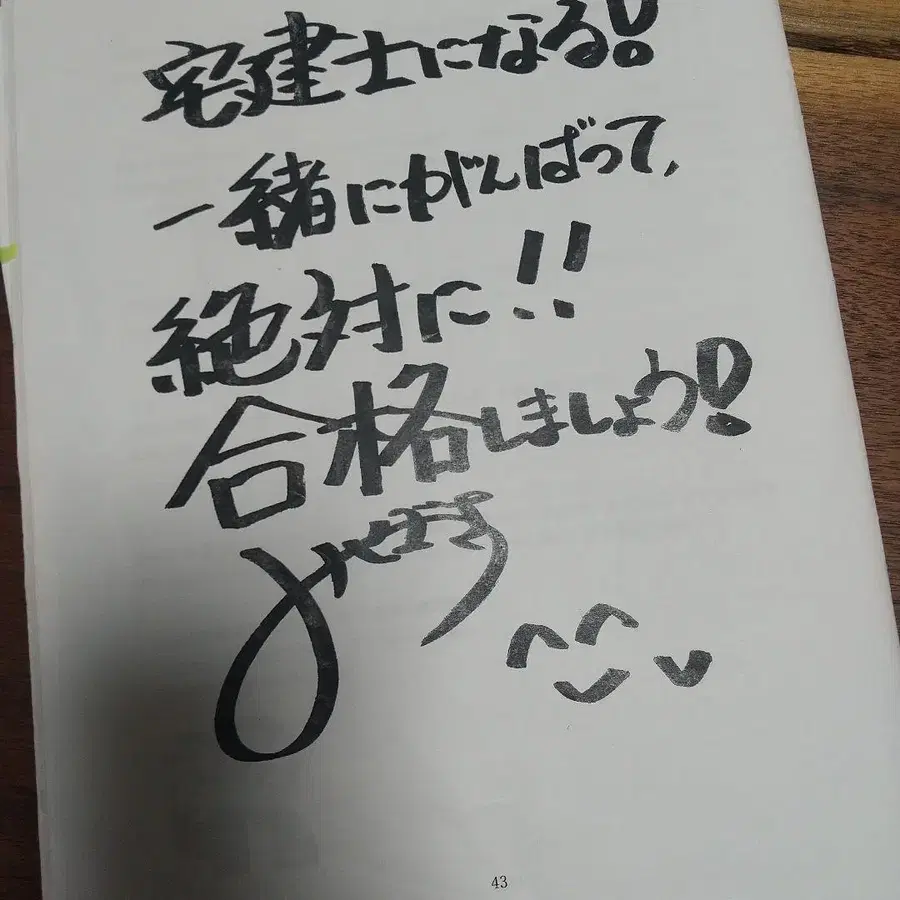 宅建士になる!
一緒にがんばって、
絶対に!!
合格しましょう!
43